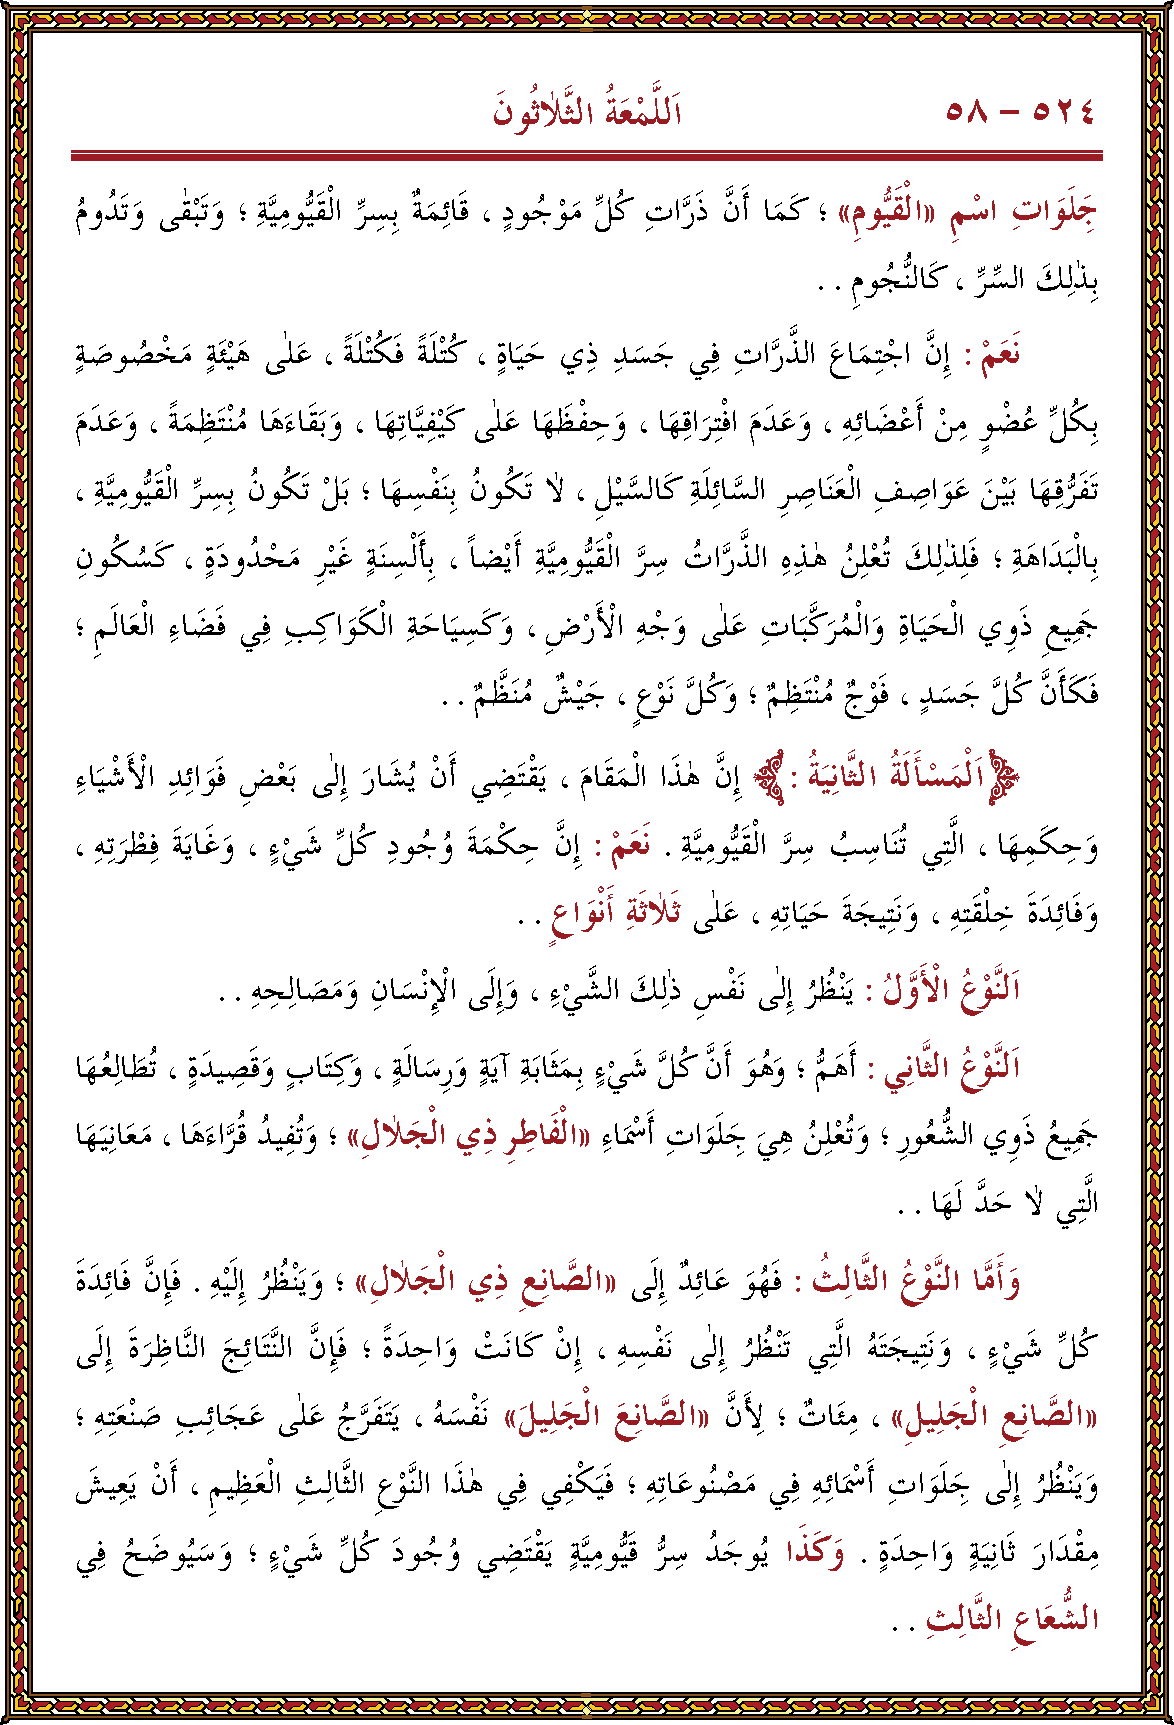 ٥٢٤ – ٥٨ اَللَّمْعَةُ الثَّلاٰثُونَ
جَِلَوَاتِ اسْمِ «الْقَيُّومِ» ؛ كَمَا أَنَّ ذَرَّاتِ كُلِّ مَوْجُودٍ ، قَائِمَةٌ بِسِرِّ الْقَيُّومِيَّةِ ؛ وَتَبْقٰى وَتَدُومُ
بِذٰلِكَ السِّرِّ ، كَالنُّجُومِ . .
نَعَمْ : إِنَّ اجْتِمَاعَ الذَّرَّاتِ فِي جَسَدِ ذِي حَيَاةٍ ، كُتْلَةً فَكُتْلَةً ، عَلٰى هَيْئَةٍ مَخْصُوصَةٍ
بِكُلِّ عُضْوٍ مِنْ أَعْضَائِهِ ، وَعَدَمَ افْتِرَاقِهَا ، وَحِفْظَهَا عَلٰى كَيْفِيَّاتِهَا ، وَبَقَاءَهَا مُنْتَظِمَةً ، وَعَدَمَ
تَفَرُّقِهَا بَيْنَ عَوَاصِفِ الْعَنَاصِرِ السَّائِلَةِ كَالسَّيْلِ ، لاٰ تَكُونُ بِنَفْسِهَا ؛ بَلْ تَكُونُ بِسِرِّ الْقَيُّومِيَّةِ ،
بِالْبَدَاهَةِ ؛ فَلِذٰلِكَ تُعْلِنُ هٰذِهِ الذَّرَّاتُ سِرَّ الْقَيُّومِيَّةِ أَيْضاً ، بِأَلْسِنَةٍ غَيْرِ مَحْدُودَةٍ ، كَسُكُونِ
جَمِيعِ ذَوِي الْحَيَاةِ وَالْمُرَكَّبَاتِ عَلٰى وَجْهِ الْأَرْضِ ، وَكَسِيَاحَةِ الْكَوَاكِبِ فِي فَضَاءِ الْعَالَمِ ؛
فَكَأَنَّ كُلَّ جَسَدٍ ، فَوْجٌ مُنْتَظِمٌ ؛ وَكُلَّ نَوْعٍ ، جَيْشٌ مُنَظَّمٌ . .
﴿اَلْمَسْأَلَةُ الثَّانِيَةُ :﴾ إِنَّ هٰذَا الْمَقَامَ ، يَقْتَضِي أَنْ يُشَارَ إِلٰى بَعْضِ فَوَائِدِ الْأَشْيَاءِ
وَحِكَمِهَا ، الَّتِي تُنَاسِبُ سِرَّ الْقَيُّومِيَّةِ . نَعَمْ : إِنَّ حِكْمَةَ وُجُودِ كُلِّ شَيْءٍ ، وَغَايَةَ فِطْرَتِهِ ،
وَفَائِدَةَ خِلْقَتِهِ ، وَنَتِيجَةَ حَيَاتِهِ ، عَلٰى ثَلاٰثَةِ أَنْوَاعٍ . .
اَلنَّوْعُ الْأَوَّلُ : يَنْظُرُ إِلٰى نَفْسِ ذٰلِكَ الشَّيْءِ ، وَإِلَى الْإِنْسَانِ وَمَصَالِحِهِ . .
اَلنَّوْعُ الثَّانِي : أَهَمُّ ؛ وَهُوَ أَنَّ كُلَّ شَيْءٍ بِمَثَابَةِ آيَةٍ وَرِسَالَةٍ ، وَكِتَابٍ وَقَصِيدَةٍ ، تُطَالِعُهَا
جَمِيعُ ذَوِي الشُّعُورِ ؛ وَتُعْلِنُ هِيَ جَِلَوَاتِ أَسْمَاءِ «الْفَاطِرِ ذِي الْجَلاٰلِ» ؛ وَتُفِيدُ قُرَّاءَهَا ، مَعَانِيَهَا
الَّتِي لاٰ حَدَّ لَهَا . .
وَأَمَّا النَّوْعُ الثَّالِثُ : فَهُوَ عَائِدٌ إِلَى «الصَّانِعِ ذِي الْجَلاٰلِ» ؛ وَيَنْظُرُ إِلَيْهِ . فَإِنَّ فَائِدَةَ
كُلِّ شَيْءٍ ، وَنَتِيجَتَهُ الَّتِي تَنْظُرُ إِلٰى نَفْسِهِ ، إِنْ كَانَتْ وَاحِدَةً ؛ فَإِنَّ النَّتَائِجَ النَّاظِرَةَ إِلَى
«الصَّانِعِ الْجَلِيلِ» ، مِئَاتٌ ؛ لِأَنَّ «الصَّانِعَ الْجَلِيلَ» نَفْسَهُ ، يَتَفَرَّجُ عَلٰى عَجَائِبِ صَنْعَتِهِ ؛
وَيَنْظُرُ إِلٰى جَِلَوَاتِ أَسْمَائِهِ فِي مَصْنُوعَاتِهِ ؛ فَيَكْفِي فِي هٰذَا النَّوْعِ الثَّالِثِ الْعَظِيمِ ، أَنْ يَعِيشَ
مِقْدَارَ ثَانِيَةٍ وَاحِدَةٍ . وَكَذَا يُوجَدُ سِرُّ قَيُّومِيَّةٍ يَقْتَضِي وُجُودَ كُلِّ شَيْءٍ ؛ وَسَيُوَضَحُ فِي
الشُّعَاعِ الثَّالِثِ . .